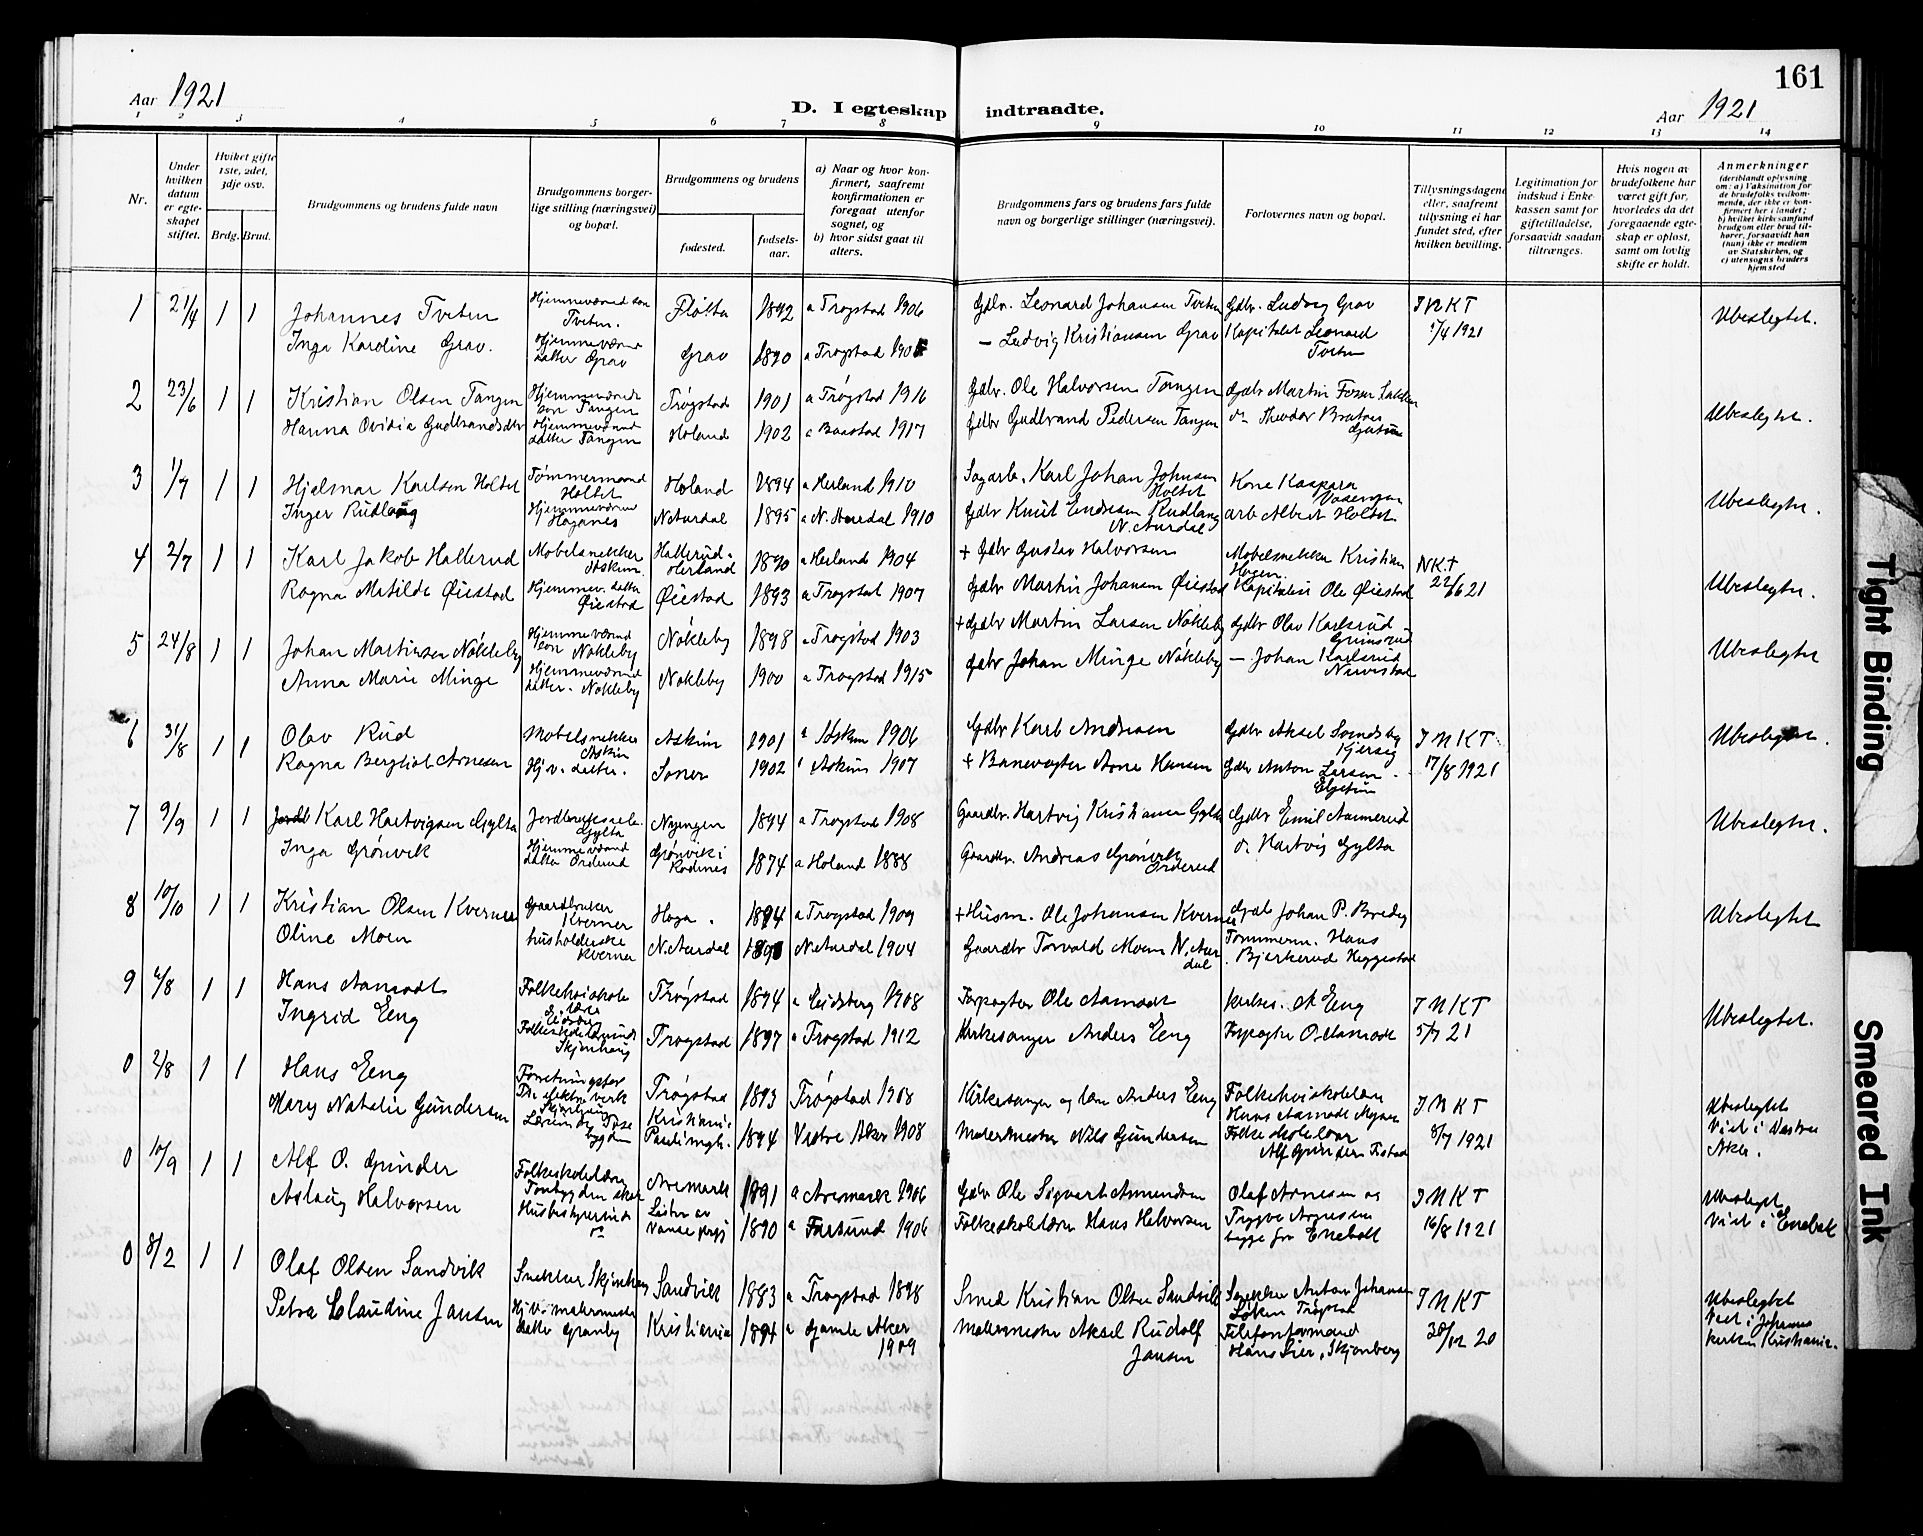 161
Aar 1921
D. I egteskap indtraadte.
Aar 1921
1 2 3 4 5 6 7 8 9 10 11 12 13 14
Nr.
Under hvilken datum er egteskapet stiftet.
Hvilket gifte 1ste, 2det, 3dje osv.
Brdg. Brud.
Brudgommens og brudens fulde navn
Brudgommens borgerlige stilling (næringsvei) og bopæl.
Brudgommens og brudens
fødested.
fødselsaar.
a) Naar og hvor konfirmert, saafremt konfirmationen er foregaat utenfor sognet, og
b) hvor sidst gaat til alters.
Brudgommens fars og brudens fars fulde navn og borgerlige stillinger (næringsvei).
Forlovernes navn og bopæl.
Tillysningsdagene eller, saafremt tillysning ei har fundet sted, efter hvilken bevilling.
Legitimation for indskud i Enkekassen samt for giftetilladelse, forsaavidt saadan tiltrænges.
Hvis nogen av brudefolkene har været gift før, hvorledes da det foregaaende egteskap er opløst, samt om lovlig skifte er holdt.
Anmerkninger (deriblandt oplysning om: a) Vaksination for de brudefolks vedkommende, der ikke er konfirmert her i landet; b) hvilket kirkesamfund brudgom eller brud tilhører, forsaavidt han (hun) ikke er medlem av Statskirken, og c) utensogns bruders hjemsted
1 21/4 1 1 Johannes Tveten Hjemmeværend søn Tveten. Fløtta 1892 a Trøgstad 1906 Gdbr. Leonard Johansen Tveten Gdbr. Ludvig Grav J N K T Ubeslegtet.
Inga Karoline Grav. Hjemmeværend datter Grav Grav 1890 a Trøgstad — Ludvig Kristiansen Grav Kapitalist Leonard Tveten 1/4 1921
2 23/6 1 1 Kristian Olsen Tangen Hjemmeværende søn Tangen Trøgstad 1901 a Trøgstad 1916 Gdbr. Ole Halvorsen Tangen Gdbr Martin Ubeslegtet.
Hanna Ovidia Gudbrandsdtr Hjemmeværend datter Tangen Høland 1902 a Baastad 1917 Gdbr Gudbrand Pedersen Tangen Theodor
3 1/7 1 1 Hjelmar Karlsen Holtet Tømmermand Holtet Høland 1894 a Herland 1910 Sagarb. Karl Johan Johnsen Holtet Kone Kaspara Ubeslegtet.
Inger Rudlang Hjemmeværend N. Aurdal 1895 a N. Aurdal 1910 Gdbr Knut Endresen Rudlang N. Aurdal arb Albert Holtet
4 2/7 1 1 Karl Jakob Hallerud Møbelsnekker Askim. Hallerud. Herland 1890 a Herland 1904 + Gdbr Gustav Halvorsen Møbelsnekker Kristian Hagen. N K T Ubeslegtet.
Ragna Matilde Øiestad Hjemmev. datter Øiestad Øiestad 1893 a Trøgstad 1907 Gdbr Martin Johansen Øiestad Kapitalist Ole Øiestad 22/6 21
5 24/8 1 1 Johan Martinsen Nökleby Hjemmeværend søn Nökleby Nökleby 1898 a Trøgstad 1903 + Gdbr Martin Larsen Nökleby Gdbr Olav Karlsrud Grimsrud Ubeslegtet
Anna Marie Minge Hjemmeværend datter. Nökleby Nökleby 1900 a Trøgstad 1915 Gdbr Johan Minge Nökleby — Johan Karlsrud
6 31/8 1 1 Olav Rud Møbelsnekker Askim Askim 1901 a Askim 1906 Gdbr Karl Andresen Gdbr Aksel J N K T Ubeslegtet.
Ragna Bergliot Arnesen Hjv. datter. Soner 1902 Askim 1907 + Banevogter Arne Hansen Gdbr Anton Larsen 17/8 1921
7 9/9 1 1 Karl Hartvigsen Gylta Gylta Nyengen 1894 a Trøgstad 1908 Gaardbr. Hartvig Kristiansen Gylta Gdbr Emil Aamerud Ubeslegtet.
Inga Grønvik Hjemmeværend datter Orderud Grønvik i Rødenes 1874 a Høland 1888 Gaardbr. Andreas Grønvik Orderud Hartvig Gylta
8 10/10 1 1 Kristian Olsen Kverner Gaardbruker Kverner Haga. 1894 a Trøgstad 1909 + Husm. Ole Johansen Kverner Gdbr Johan P. Bredeg Ubeslegtet
Oline Moen husholderske Kverner N. Aurdal N. Aurdal 1904 Gaardbr Torvald Moen N. Aurdal Tømmerm. Hans Bjerkerud Heggestad
9 6/8 1 1 Hans Aamodt Folkehøiskolelærer Eidsberg Trøgstad 1894 a Eidsberg 1908 Forpagter Ole Aamodt kirkes. A Eeng J N K T Ubeslegtet.
Ingrid Eeng Skjønhaug Trøgstad 1897 a Trøgstad 1912 Kirkesanger Anders Eeng Forpagter O. Aamodt 5/7 21
0 2/8 1 1 Hans Eeng Trøgstad 1893 Trøgstad 1908 Kirkesanger og lærer Anders Eeng Folkehøiskolelærer Hans Aamodt Mysen J N K T Ubeslegtet
Mary Natalie Gundersen Kristiania 1894 Vestre Aker 1908 Malermester Nils Gundersen Folkeskolelærer Alf Grinder 8/7 1921 Viet i Vestre Aker.
0 10/9 1 1 Alf O. Grinder Folkeskolelærer Aremark 1891 a Aremark 1906 Gdbr Ole Sigvart Amundsen Olaf Arnesen og J N K T Ubeslegtet
Aslaug Halvorsen Husbestyrerinde 1890 a Farsund 1906 Folkeskolelærer Hans Halvorsen Trygve Arnesen begge fra Enebakk 16/8 1921 Viet i Enebak
0 8/2 1 1 Olaf Olsen Sandvik Snekker Skjønhaug Sandvik 1883 a Trøgstad 1898 Smed Kristian Olsen Sandvik Snekker Anton Johansen Løken Trøgstad J N K T Ubeslegtet
Petra Claudine Jansen Hjv. malermester datter Granby Kristiania 1894 a Gamle Aker 1909 Malermester Aksel Rudolf Jansen Telefonformand Hans Lier, Skjønberg 30/12 20 Viet i Johannes kirken Kristiania.
Tight Binding
Smeared Ink